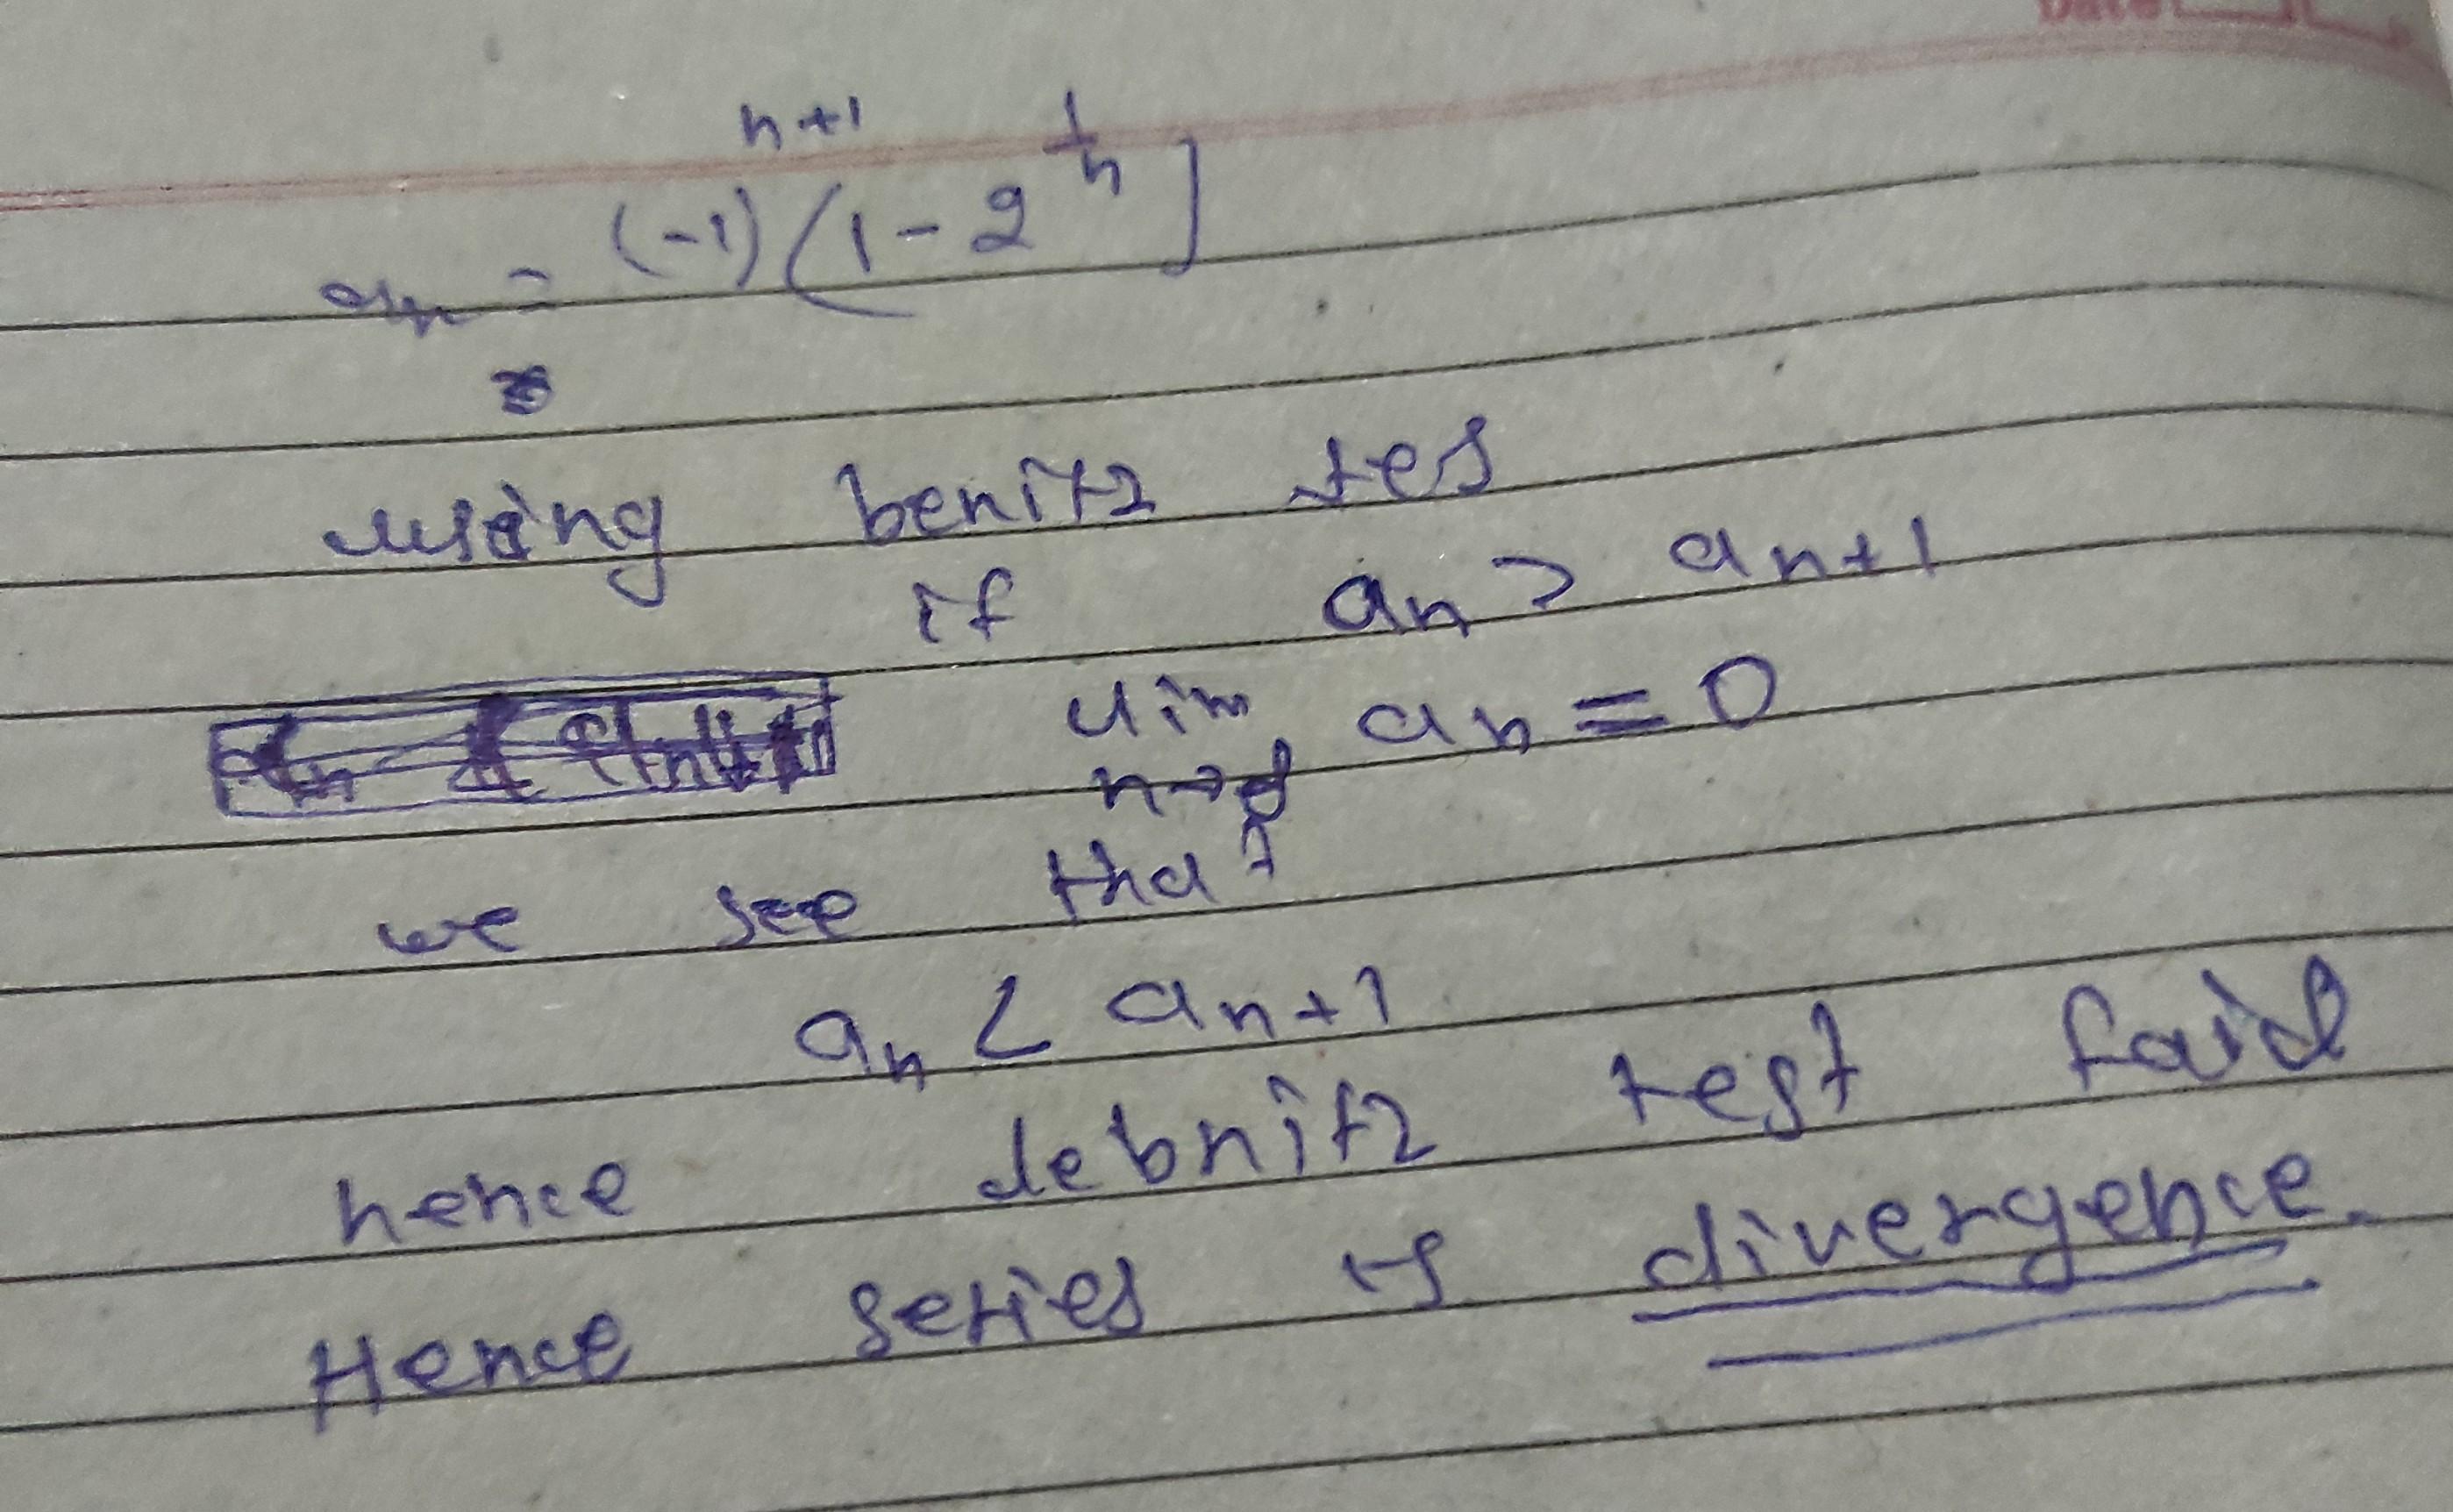 Date
aₙ = (-1)ⁿ⁺¹ (1 - 2^(1/n)]
using benitz tes
if aₙ > aₙ₊₁
lim aₙ = 0
n→
we see that
aₙ < aₙ₊₁
hence lebnitz test faild
Hence series is divergence.